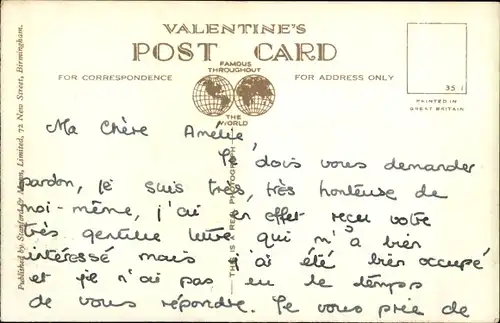 VALENTINE'S
POST CARD
FAMOUS
THROUGHOUT
THE
WORLD
FOR CORRESPONDENCE
FOR ADDRESS ONLY
35 1
PRINTED IN
GREAT BRITAIN
Published by Stanford & Mann, Limited, 72 New Street, Birmingham.
THIS IS A REAL PHOTOGRAPH
Ma Chère Amélie
Je dois vous demander
pardon, je suis très, très honteuse de
moi-même, j'ai en effet reçu votre
très gentille lettre qui m'a bien
intéressé mais j'ai été bien occupé
et je n'ai pas eu le temps
de vous répondre. Je vous prie de